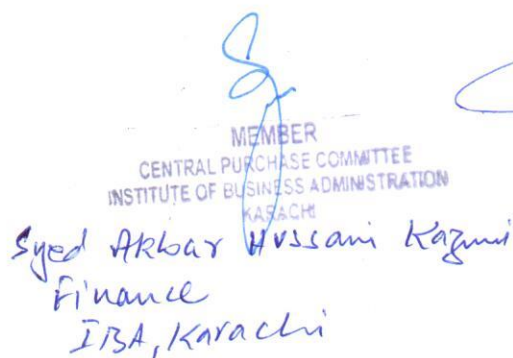 MEMBER
CENTRAL PURCHASE COMMITTEE
INSTITUTE OF BUSINESS ADMINISTRATION
KARACHI
Syed Akbar Hussani Kazmi
Finance
IBA, Karachi